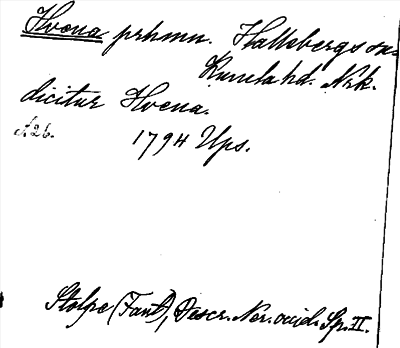 Hvena prhmn. Hallebergs sn.
Kumla hd. Nrk.
dicitur Hvena.
A26. 1794 Ups.
Stolpe (Fant), Descr. Ner. occid. Sp. II.